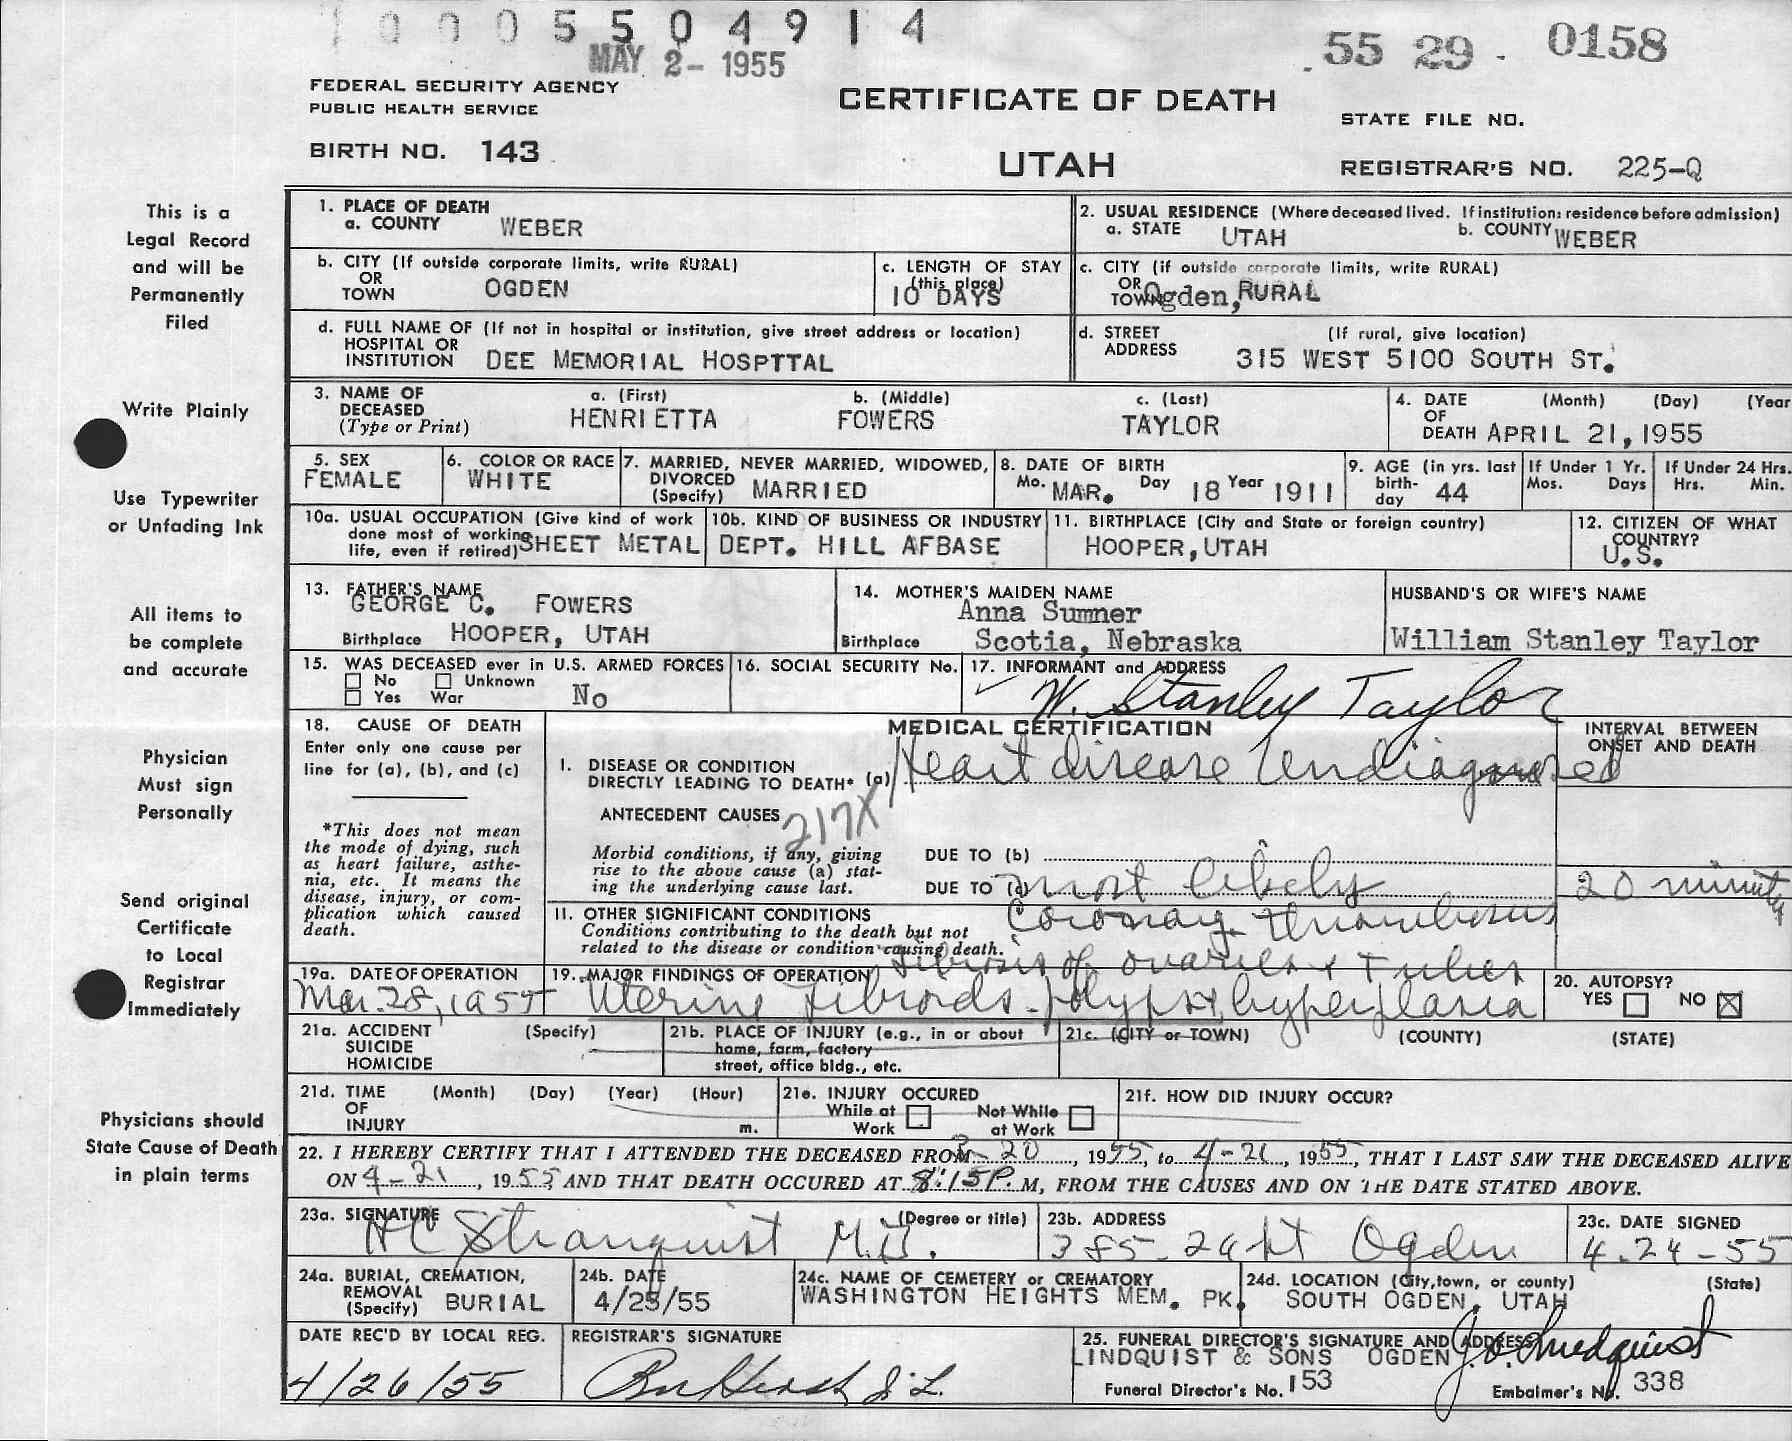 10005504914
MAY 2- 1955
55 29 - 0158
FEDERAL SECURITY AGENCY
PUBLIC HEALTH SERVICE
CERTIFICATE OF DEATH
STATE FILE NO.
BIRTH NO. 143
UTAH
REGISTRAR'S NO. 225-Q
This is a
Legal Record
and will be
Permanently
Filed
Write Plainly
Use Typewriter
or Unfading Ink
All items to
be complete
and accurate
Physician
Must sign
Personally
Send original
Certificate
to Local
Registrar
Immediately
Physicians should
State Cause of Death
in plain terms
1. PLACE OF DEATH
a. COUNTY WEBER
2. USUAL RESIDENCE (Where deceased lived. If institution: residence before admission)
a. STATE UTAH b. COUNTY WEBER
b. CITY (If outside corporate limits, write RURAL)
OR
TOWN OGDEN
c. LENGTH OF STAY
(this place)
10 DAYS
c. CITY (if outside corporate limits, write RURAL)
OR
TOWN Ogden, RURAL
d. FULL NAME OF (If not in hospital or institution, give street address or location)
HOSPITAL OR
INSTITUTION DEE MEMORIAL HOSPTTAL
d. STREET (If rural, give location)
ADDRESS 315 WEST 5100 SOUTH ST.
3. NAME OF DECEASED (Type or Print)
a. (First) b. (Middle) c. (Last)
HENRIETTA FOWERS TAYLOR
4. DATE OF DEATH (Month) (Day) (Year
APRIL 21, 1955
5. SEX
FEMALE
6. COLOR OR RACE
WHITE
7. MARRIED, NEVER MARRIED, WIDOWED,
DIVORCED
(Specify) MARRIED
8. DATE OF BIRTH
Mo. MAR. Day 18 Year 1911
9. AGE (in yrs. last
birth-
day 44
If Under 1 Yr.
Mos. Days
If Under 24 Hrs.
Hrs. Min.
10a. USUAL OCCUPATION (Give kind of work
done most of working
life, even if retired) SHEET METAL
10b. KIND OF BUSINESS OR INDUSTRY
DEPT. HILL AFBASE
11. BIRTHPLACE (City and State or foreign country)
HOOPER, UTAH
12. CITIZEN OF WHAT
COUNTRY?
U.S.
13. FATHER'S NAME
GEORGE C. FOWERS
Birthplace HOOPER, UTAH
14. MOTHER'S MAIDEN NAME
Anna Sumner
Birthplace Scotia, Nebraska
HUSBAND'S OR WIFE'S NAME
William Stanley Taylor
15. WAS DECEASED ever in U.S. ARMED FORCES
No Unknown
Yes War No
16. SOCIAL SECURITY No.
17. INFORMANT and ADDRESS
W. Stanley Taylor
18. CAUSE OF DEATH
Enter only one cause per
line for (a), (b), and (c)
*This does not mean
the mode of dying, such
as heart failure, asthe-
nia, etc. It means the
disease, injury, or com-
plication which caused
death.
MEDICAL CERTIFICATION
INTERVAL BETWEEN
ONSET AND DEATH
I. DISEASE OR CONDITION
DIRECTLY LEADING TO DEATH* (a) Heart disease Undiagnosed
ANTECEDENT CAUSES
217X
Morbid conditions, if any, giving
rise to the above cause (a) stat-
ing the underlying cause last.
DUE TO (b)
DUE TO (c) most likely
20 minutes
II. OTHER SIGNIFICANT CONDITIONS
Conditions contributing to the death but not
related to the disease or condition causing death.
Coronary thrombosis
19a. DATE OF OPERATION
Mar. 28, 1955
19. MAJOR FINDINGS OF OPERATION
Fibrosis of ovaries + Tubes
Uterine Fibroids - polyps + hyperplasia
20. AUTOPSY?
YES NO ☒
21a. ACCIDENT (Specify)
SUICIDE
HOMICIDE
21b. PLACE OF INJURY (e.g., in or about
home, farm, factory
street, office bldg., etc.
21c. (CITY or TOWN) (COUNTY) (STATE)
21d. TIME (Month) (Day) (Year) (Hour)
OF
INJURY m.
21e. INJURY OCCURED
While at Work Not While at Work
21f. HOW DID INJURY OCCUR?
22. I HEREBY CERTIFY THAT I ATTENDED THE DECEASED FROM 3-20, 1955, to 4-21, 1955, THAT I LAST SAW THE DECEASED ALIVE
ON 4-21, 1955, AND THAT DEATH OCCURED AT 8:15P. M, FROM THE CAUSES AND ON THE DATE STATED ABOVE.
23a. SIGNATURE (Degree or title)
HC Stranquist M.D.
23b. ADDRESS
385-24th Ogden
23c. DATE SIGNED
4-24-55
24a. BURIAL, CREMATION,
REMOVAL
(Specify) BURIAL
24b. DATE
4/25/55
24c. NAME OF CEMETERY or CREMATORY
WASHINGTON HEIGHTS MEM. PK.
24d. LOCATION (City, town, or county) (State)
SOUTH OGDEN, UTAH
DATE REC'D BY LOCAL REG.
4/26/55
REGISTRAR'S SIGNATURE
25. FUNERAL DIRECTOR'S SIGNATURE AND ADDRESS
LINDQUIST & SONS OGDEN J.O. Lindquist
Funeral Director's No. 153
Embalmer's No. 338